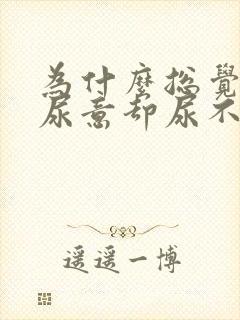 為什麼總覺
尿意却尿不
遥遥一博